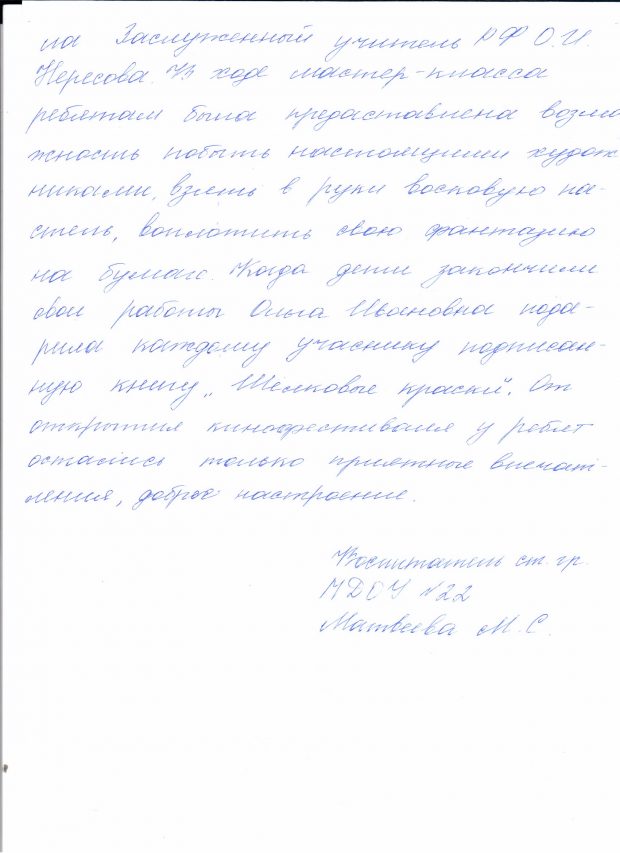 ла Заслуженный учитель РФ О.И.
Нересова. В ходе мастер-класса
ребятам была предаставлена возмо
жность побыть настоящими худож
никами, взять в руки восковую па-
стель, воплотить свою фантазию
на бумаге. Когда дети закончили
свои работы Ольга Ивановна пода-
рила каждому учаснику подписан-
ную книгу „Шелковые краски". От
открытия кинофестиваля у ребят
остались только приятные впечат-
ления, доброе настроение.
Воспитатель ст. гр.
МДОУ №22
Матвеева М.С.